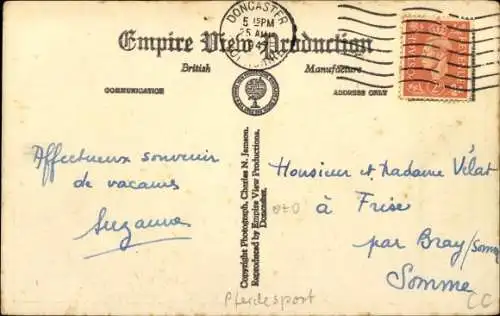 DONCASTER
5 15PM
Empire View Production
British Manufacture
COMMUNICATION
ADDRESS ONLY
Affectueux souvenir
de vacances
Suzanne
Copyright Photograph, Charles N. Jamson.
Reproduced by Empire View Productions,
Doncaster.
Monsieur et Madame Vélat
à Frise
par Bray/Somme
Somme
Pferdesport
CC